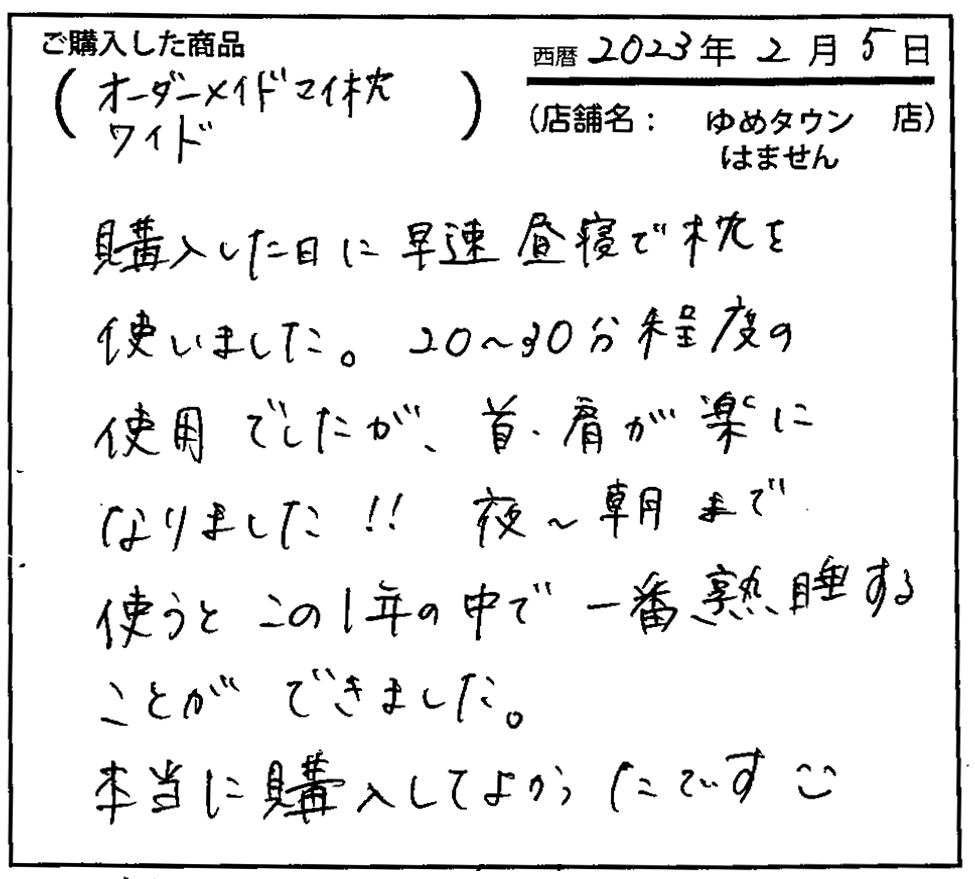 ご購入した商品
(オーダーメイドマイ枕
ワイド)
西暦 2023年2月5日
(店舗名： ゆめタウン 店)
はません
購入した日に早速昼寝で枕を
使いました。20〜30分程度の
使用でしたが、首・肩が楽に
なりました!! 夜〜朝まで
使うとこの1年の中で一番熟睡する
ことができました。
本当に購入してよかったです